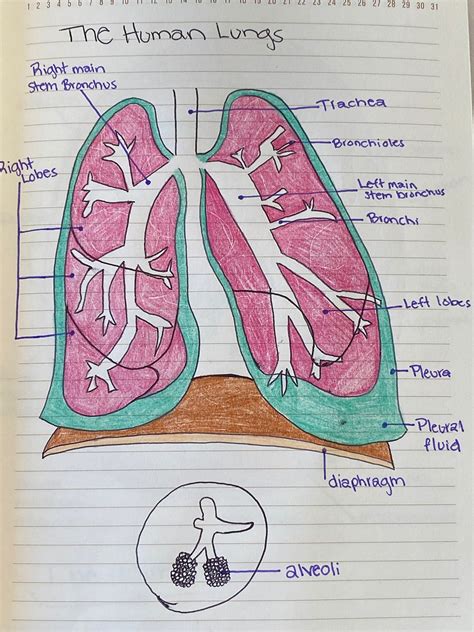 1 2 3 4 5 6 7 8 9 10 11 12 13 14 15 16 17 18 19 20 21 22 23 24 25 26 27 28 29 30 31
The Human Lungs
Right main
stem Bronchus
Trachea
Bronchioles
Right
Lobes
Left main
stem bronchus
Bronchi
Left lobes
Pleura
Pleural
fluid
diaphragm
alveoli